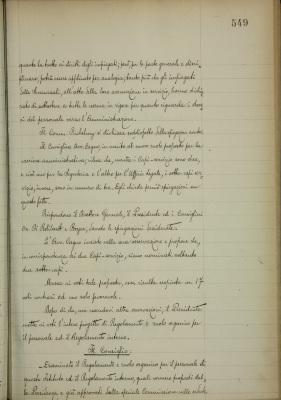 549
quanto ha tratto ai diritti degli impiegati; però per la parte generale e disci-
plinare potrà essere applicato per analogia; tanto più che gli impiegati
della Municipale, all'atto della loro assunzione in servizio, hanno dichia-
rato di sottostare a tutte le norme in vigore per quanto riguarda i dove-
ri del personale verso l'Amministrazione.
Il Comm. si dichiara soddisfatto delle spiegazioni avute.
Il Consigliere Avv. Cagno, in merito al nuovo ruolo proposto per la
carriera amministrativa, rileva che, mentre i Capi-servizio sono due,
e cioè uno per la Segreteria e l'altro per l'Ufficio legale, i sotto capi ser-
vizio, invece, sono in numero di tre. Egli chiede perciò spiegazioni su
questo fatto.
Rispondono il Direttore Generale, il Presidente ed i Consiglieri
On. Di e dando le spiegazioni richieste.
L'Avv. Cagno insiste nella sua osservazione e propone che,
in corrispondenza dei due Capi-servizio, siano nominati soltanto
due sotto-capi.
Messa ai voti tale proposta, essa risulta respinta con 17
voti contrari ed uno solo favorevole.
Dopo di che, non essendovi altre osservazioni, il Presidente
mette ai voti l'intero progetto di Regolamento e ruolo organico per
il personale ed il Regolamento interno.
Il Consiglio:
Esaminato il Regolamento e ruolo organico per il personale di
questo Istituto ed il Regolamento interno, quali vennero proposti dal-
la Presidenza e già approvati dalla speciale Commissione nelle